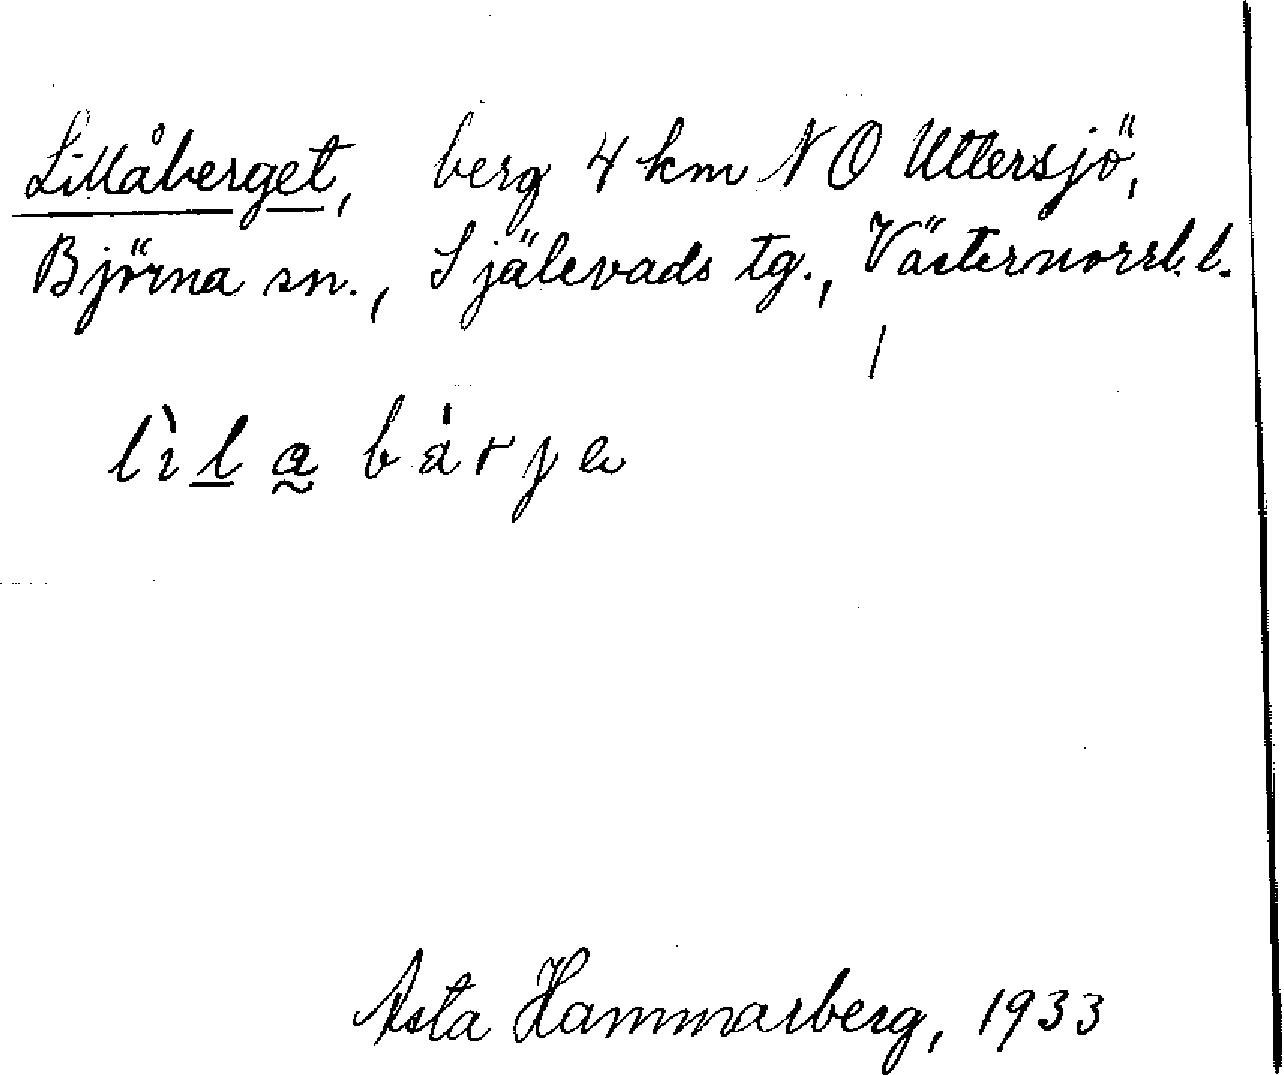 Lillåberget, berg 4 km NO Uttersjö,
Björna sn., Själevads tg., Västernorrl. l.
lìla bárje
Asta Hammarberg, 1933